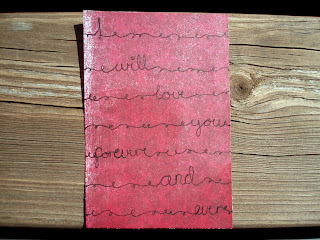 I
will
love
you
forever
and
ever